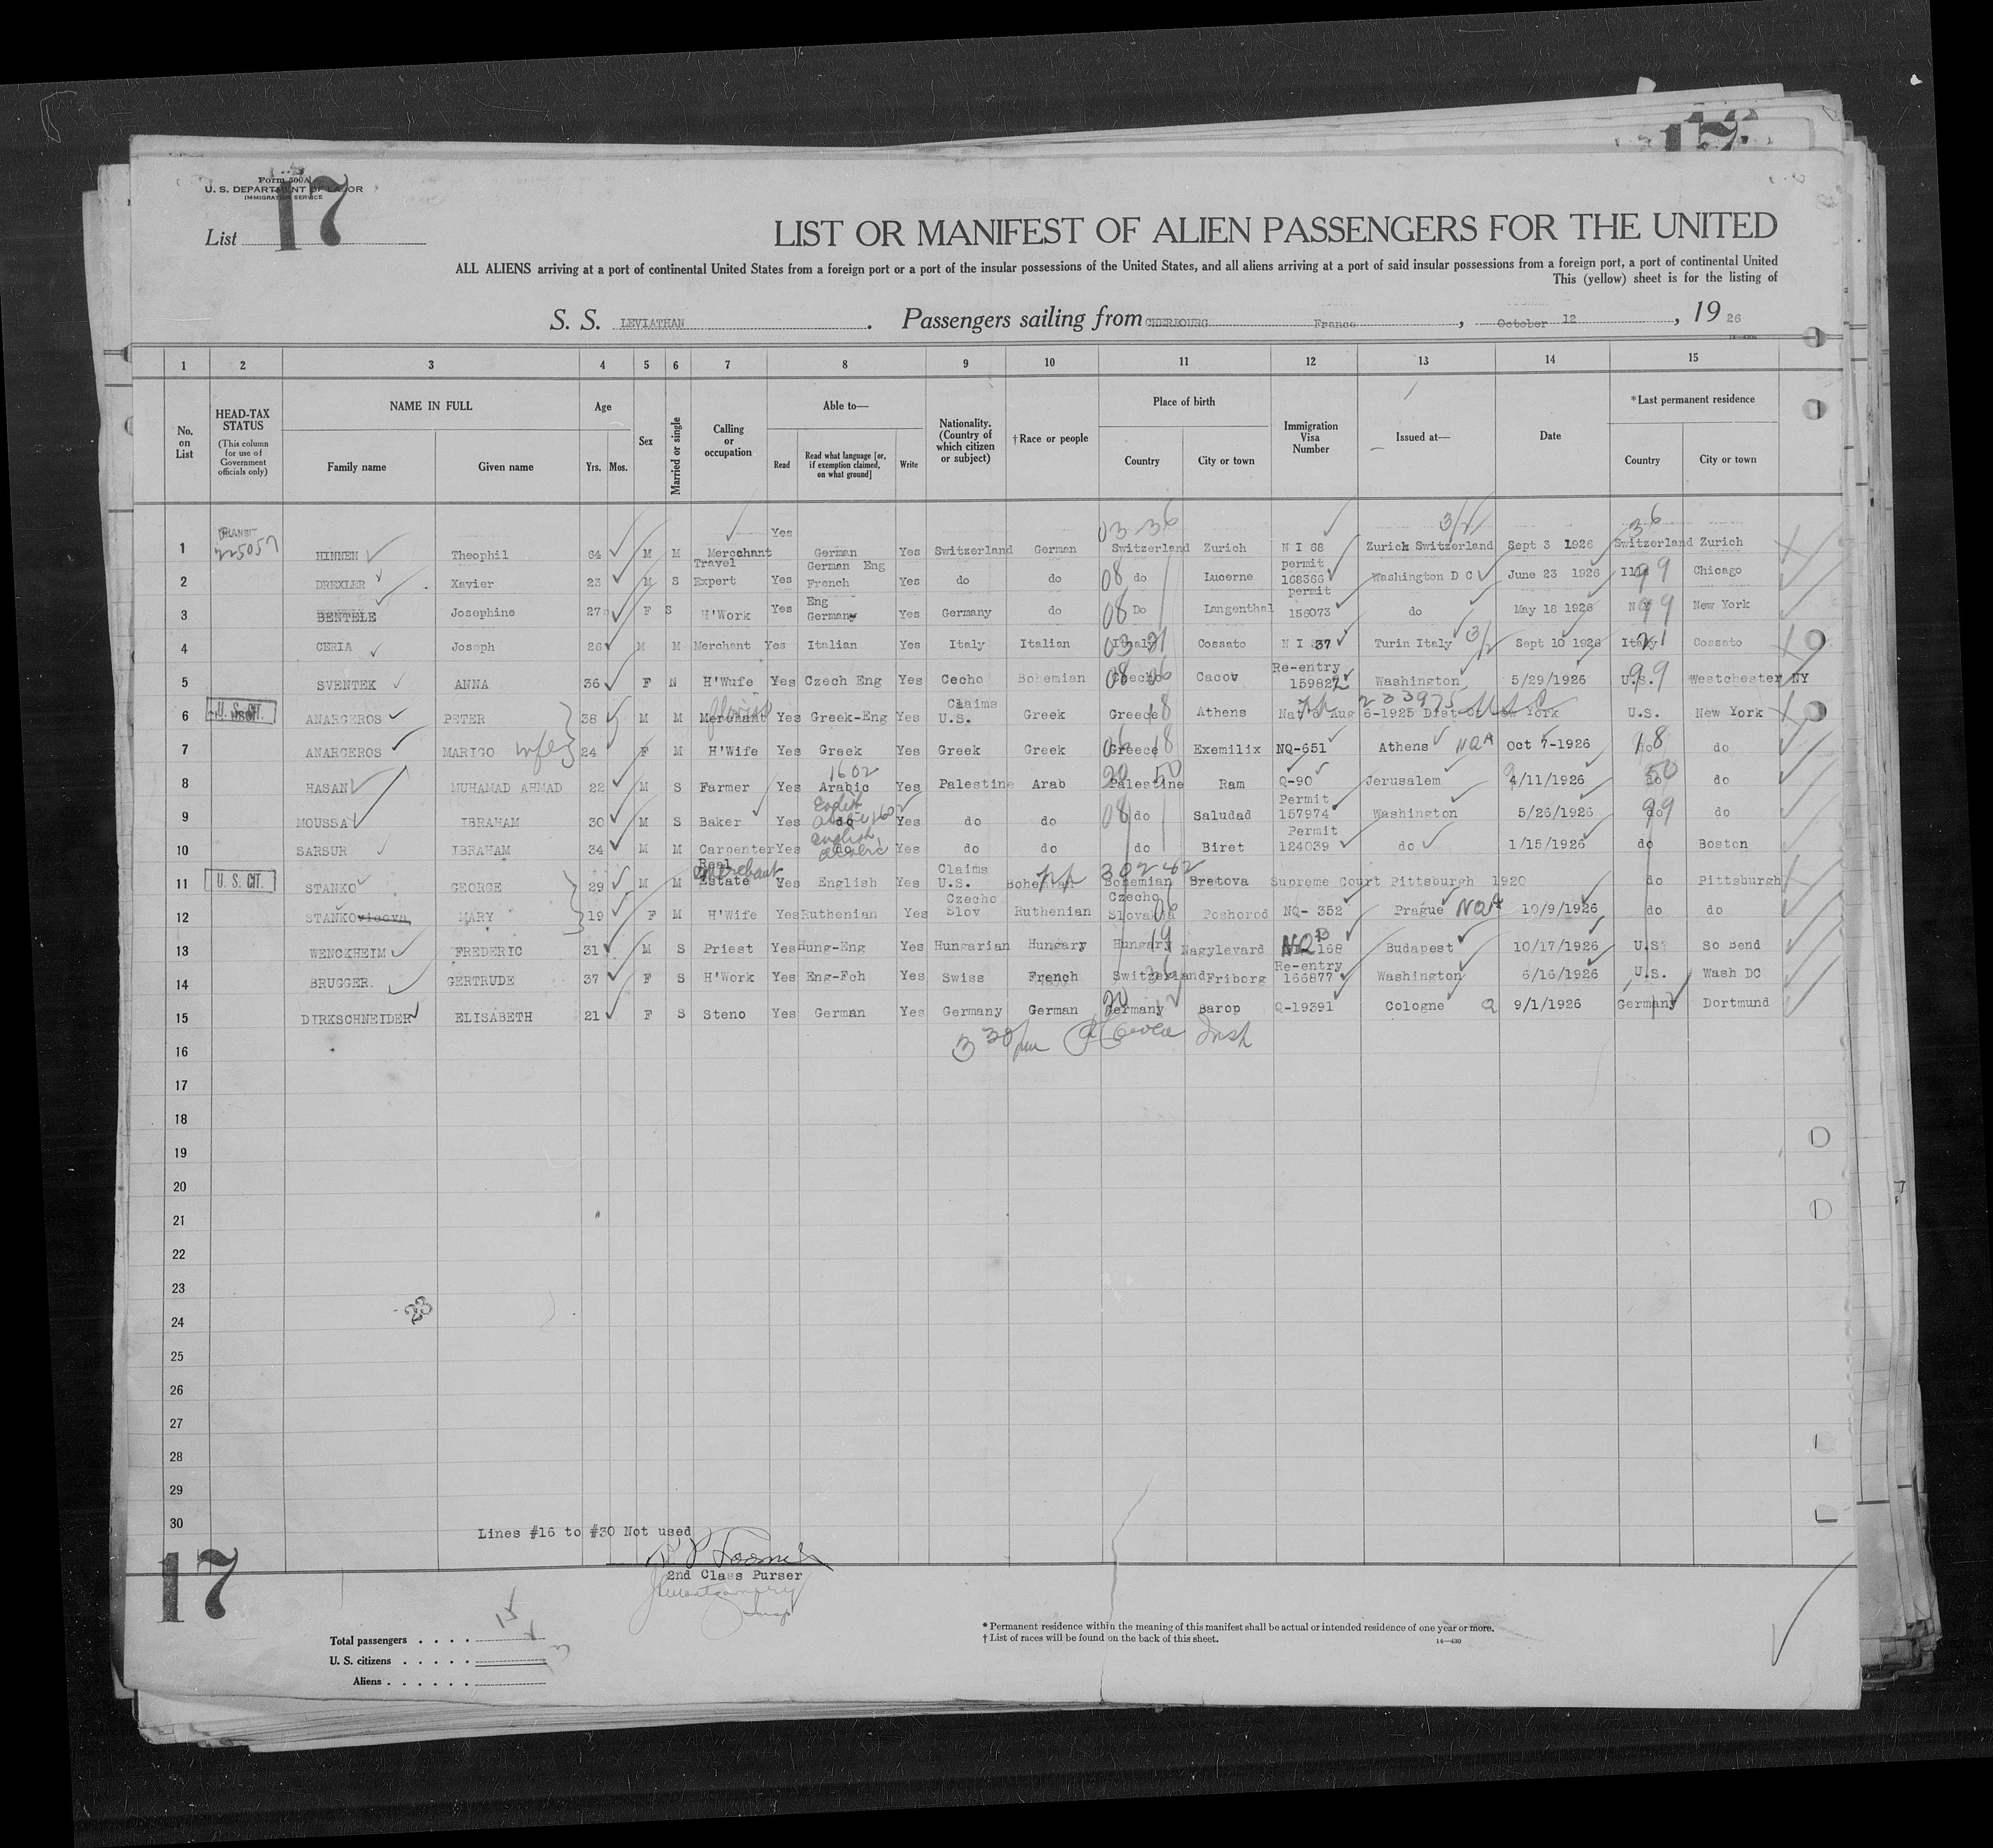 Form 500A
U. S. DEPARTMENT OF LABOR
IMMIGRATION SERVICE
17
List
LIST OR MANIFEST OF ALIEN PASSENGERS FOR THE UNITED
ALL ALIENS arriving at a port of continental United States from a foreign port or a port of the insular possessions of the United States, and all aliens arriving at a port of said insular possessions from a foreign port, a port of continental United
This (yellow) sheet is for the listing of
S. S. LEVIATHAN . Passengers sailing from CHERBOURG France , October 12 , 19 26
1 2 3 4 5 6 7 8 9 10 11 12 13 14 15
No. on List
HEAD-TAX STATUS (This column for use of Government officials only)
NAME IN FULL Family name Given name
Age Yrs. Mos.
Sex
Married or single
Calling or occupation
Able to— Read Read what language [or, if exemption claimed, on what ground] Write
Nationality. (Country of which citizen or subject)
† Race or people
Place of birth Country City or town
Immigration Visa Number
Issued at—
Date
* Last permanent residence Country City or town
1 TRANSIT 225057 HINNEN Theophil 64 M M Merchant Yes German Yes Switzerland German 03-36 Switzerland Zurich N I 68 Zurick Switzerland 3/2 Sept 3 1926 36 Switzerland Zurich
2 DREXLER Xavier 23 M S Travel Expert Yes German Eng French Yes do do 08 do Lucerne permit 168366 Washington D C June 23 1926 Ills 99 Chicago
3 BENTELE Josephine 27 F S H'Work Yes Eng Germany Yes Germany do 08 Do Langenthal permit 156073 do May 18 1926 N Y 99 New York
4 CERIA Joseph 26 M M Merchant Yes Italian Yes Italy Italian 03 21 Italy Cossato N I 37 Turin Italy 3/2 Sept 10 1926 Italy 21 Cossato
5 SVENTEK ANNA 36 F N H'Wufe Yes Czech Eng Yes Cecho Bohemian 08 06 Czecho Cacov Re-entry 159822 Washington 5/29/1926 U.S. 99 Westchester NY
6 U. S. CIT. ANARGEROS PETER 38 M M Merchant florist Yes Greek-Eng Yes Claims U.S. Greek Greece 18 Athens Nat pp Aug 6-1925 Dist Ct New York 233975 U.S. New York
7 ANARGEROS MARIGO wife 24 F M H'Wife Yes Greek Yes Greek Greek Greece 18 Exemilix NQ-651 Athens NQA Oct 7-1926 do 18 do
8 HASAN MUHAMAD AHMAD 22 M S Farmer Yes 1602 Arabic Yes Palestine Arab 20 50 Palestine Ram Q-90 Jerusalem 4/11/1926 do 50 do
9 MOUSSA IBRAHAM 30 M S Baker Yes English Arabic 1602 do Yes do do 08 do Saludad Permit 157974 Washington 5/26/1926 do 99 do
10 SARSUR IBRAHAM 34 M M Carpenter Yes English Arabic do Yes do do do Biret Permit 124039 do 1/15/1926 do Boston
11 U. S. CIT. STANKO GEORGE 29 M M Real Estate Merchant Yes English Yes Claims U.S. Bohemian pp 302242 Bohemian Bretova Supreme Court Pittsburgh 1920 do Pittsburgh
12 STANKOvicova MARY 19 F M H'Wife Yes Ruthenian Yes Czecho Slov Ruthenian Czecho Slovakia 06 Poshorod NQ- 352 Prague NQA 10/9/1926 do do
13 WENCKHEIM FREDERIC 31 M S Priest Yes Hung-Eng Yes Hungarian Hungary Hungary 19 Nagylevard NQB 168 Budapest 10/17/1926 U.S. So Bend
14 BRUGGER. GERTRUDE 37 F S H'Work Yes Eng-Fch Yes Swiss French Switzerland 36 Friborg Re-entry 166877 Washington 6/16/1926 U.S. Wash DC
15 DIRKSCHNEIDER ELISABETH 21 F S Steno Yes German Yes Germany German 20 12 Germany Barop Q-19391 Cologne Q 9/1/1926 Germany Dortmund
16 3 30 pm Insp
17
18
19
20
21
22
23
24
23
25
26
27
28
29
30
Lines #16 to #30 Not used
2nd Class Purser
Montgomery
Insp
17
Total passengers . . . . 15
U. S. citizens . . . . .
Aliens . . . . . .
* Permanent residence within the meaning of this manifest shall be actual or intended residence of one year or more.
† List of races will be found on the back of this sheet.
14—430